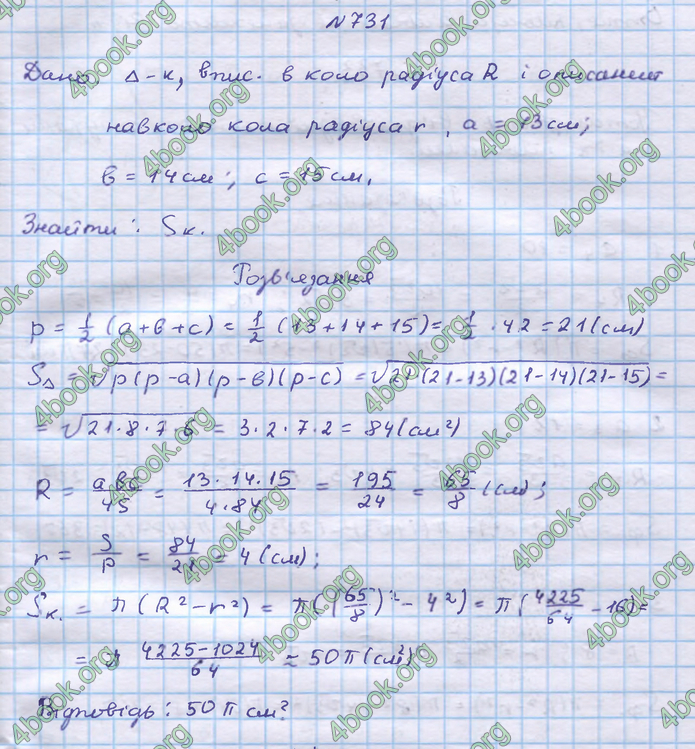 №731
Дано: Δ-к, впис. в коло радіуса R і описаний
навколо кола радіуса r, a = 13 см;
в = 14 см; c = 15 см.
Знайти: Sк.
Розв'язання
p = 1/2 (a+в+c) = 1/2 (13+14+15) = 1/2 · 42 = 21 (см)
SΔ = √p(p-a)(p-в)(p-c) = √21(21-13)(21-14)(21-15) =
= √21·8·7·6 = 3·2·7·2 = 84 (см²)
R = aвc/4S = 13·14·15/4·84 = 195/24 = 65/8 (см);
r = S/p = 84/21 = 4 (см);
Sк. = π(R²-r²) = π((65/8)²-4²) = π(4225/64 - 16) =
= π 4225-1024/64 ≈ 50π (см²)
Відповідь: 50π см².
4book.org